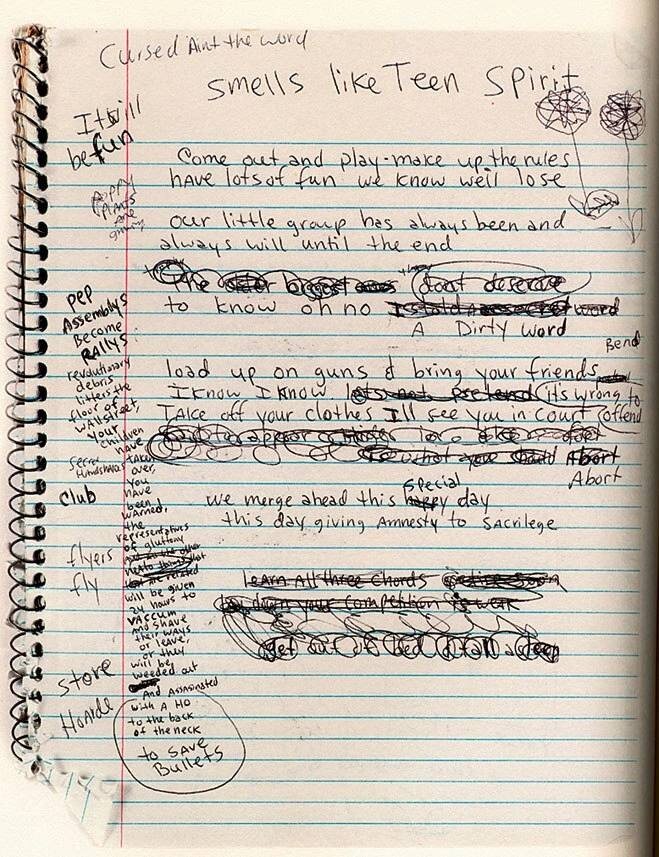 Cursed Aint the word
smells like Teen Spirit
It will
be fun
Come out and play - make up the rules
have lots of fun we know we'll lose
our little group has always been and
always will until the end
The biggest dont deserve
to know oh no word
A Dirty word
Bend
load up on guns & bring your friends
I know I know lets not pretend its wrong to
offend
TAKE off your clothes I'll see you in court
what you should Abort
Abort
special
we merge ahead this happy day
this day giving Amnesty to sacrilege
learn All three chords
down your competition is weak
get out of bed
pep
Assemblys
Become
RAllys
revolutionary
debris
litters the
floor of
wallstreet,
your
children
have
taken
over,
you
have
been
warned,
the
representatives
of gluttony
will be given
24 hours to
vaccum
and shave
their ways
or leave,
or they
will be
weeded out
And Assasinated
with A Ho
to the back
of the neck
to save
Bullets
secret
Handshakes
club
flyers
fly
store
Hoarde